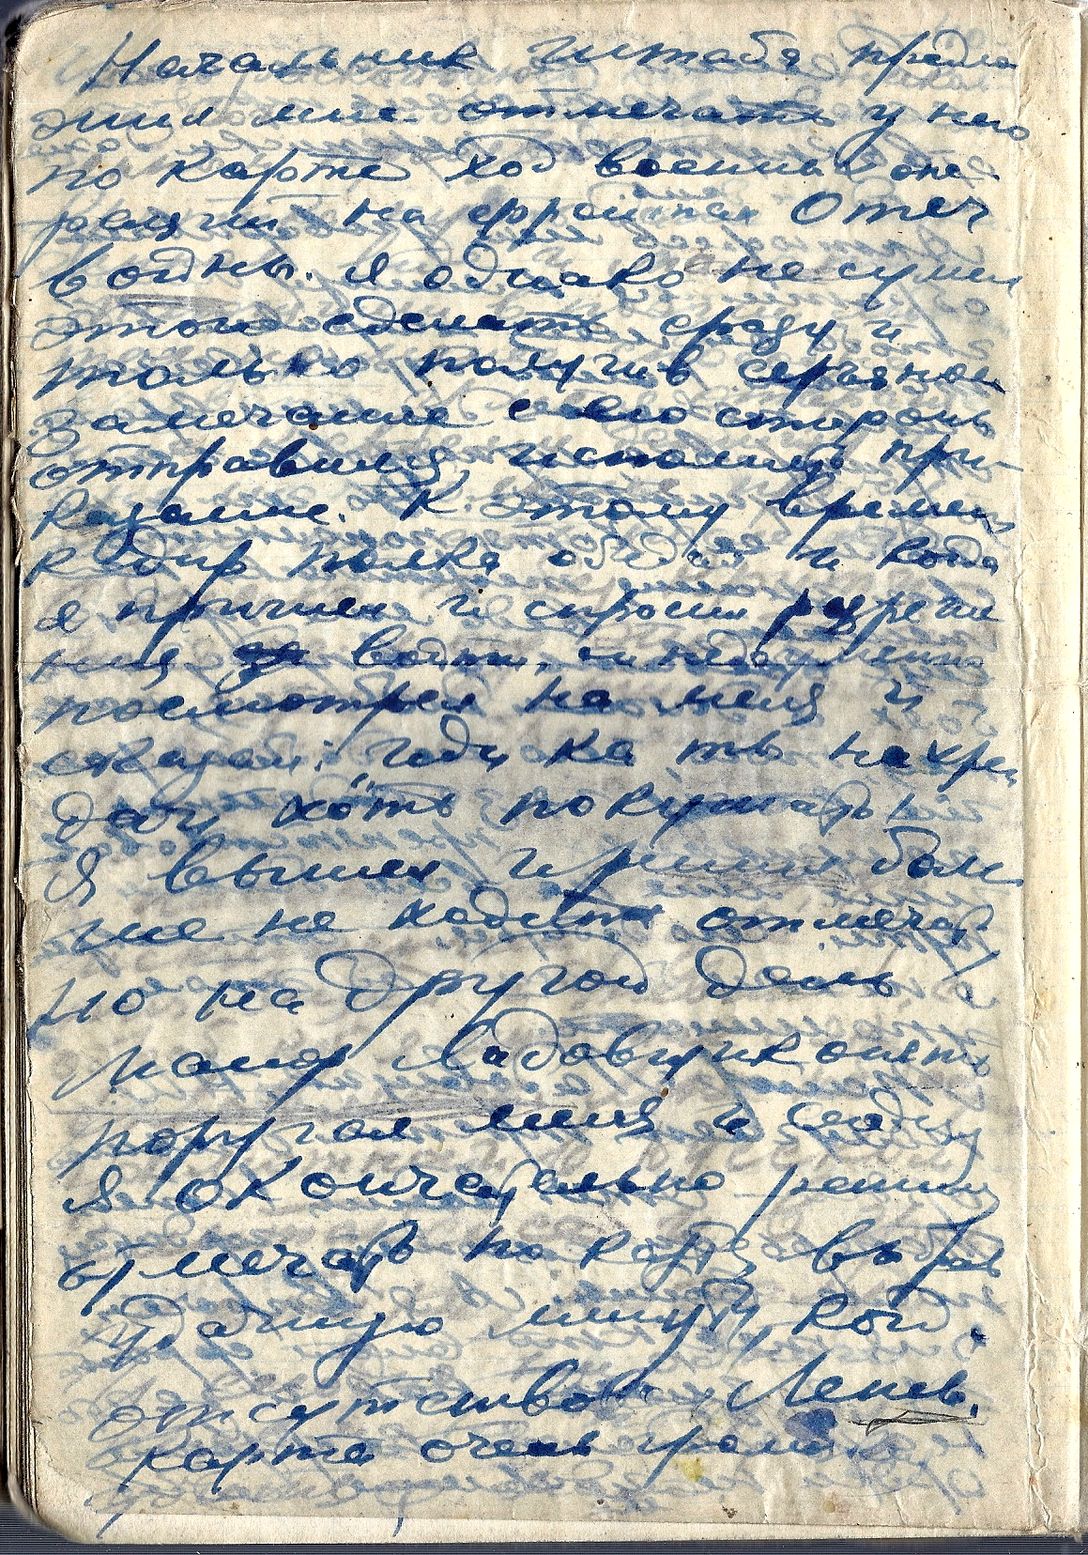 Начальник штаба предло
жил мне отмечать у него
по карте ход военных опе
раций на фронтах Отеч
войны. Я однако не сумел
этого сделать сразу и
только получив серьезное
замечание с его стороны
отправился исполнять при-
казание. К этому времени
к-дир полка обедал и когда
я пришел и спросил разреше
ния войти, он недоуменно
посмотрел на меня и
сказал: годи ка ты нахрен
дай хоть покушать
Я вышел и решил боль
ше не ходить отмечать
Но на другой день
Майор Ладовщик опять
поругал меня и
Я окончательно решил
отмечать по карте, выбрав
удачную минуту, когд.
отсутствовал Лепев.
карта очень